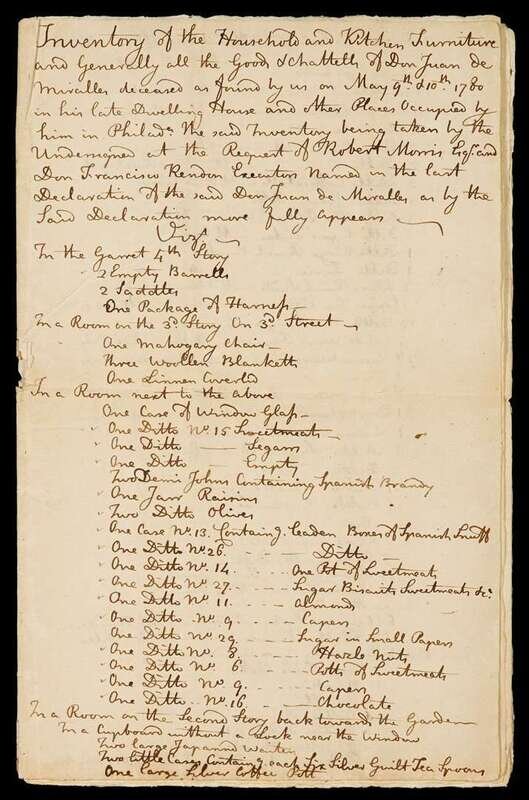 Inventory of the Household and Kitchen Furniture
and Generally all the Good & chattells of Don Juan de
Miralles deceased as found by us on May 9th & 10th 1780
in his late Dwelling House and other Places Occupied by
him in Philada. The said Inventory being taken by the
Undersigned at the Request of Robert Morris Esqr. and
Don Francisco Rendon Executors Named in the last
Declaration of the said Don Juan de Miralles as by the
Said Declaration more fully appears
Vizt
In the Garret 4th Story
2 Empty Barrells
2 Saddles
One Package of Harness
In a Room on the 3d Story On 3d Street
One Mahogany Chair
Three Woollen Blanketts
One Linnen Coverled
In a Room next to the above
One Case of Window Glass
One Ditto No. 15 Sweetmeats
One Ditto — Segars
One Ditto — Empty
Two Demi Johns Containing Spanish Brandy
One Jarr Raisins
Two Ditto Olives
One Case No. 13. Containg. Leaden Boxes of Spanish Snuff
One Ditto No. 26 - - - Ditto
One Ditto No. 14 - - - One Pot of Sweetmeats
One Ditto No. 27 - - - Sugar Biscuits Sweetmeats &c.
One Ditto No. 11 - - - Almond
One Ditto No. 9 - - - Capers
One Ditto No. 29 - - - Sugar in Small Papers
One Ditto No. 8 - - - Hazle Nuts
One Ditto No. 6 - - - Potts of Sweetmeats
One Ditto No. 9 - - - Capers
One Ditto No. 16 - - - Chocolate
In a Room on the Second Story back towards the Garden
In a Cupboard without a Lock near the Window
Two large Japannd Waiters
Two Little Cases Containg. each Six Silver Guilt Tea Spoons
One Large Silver Coffee Pott